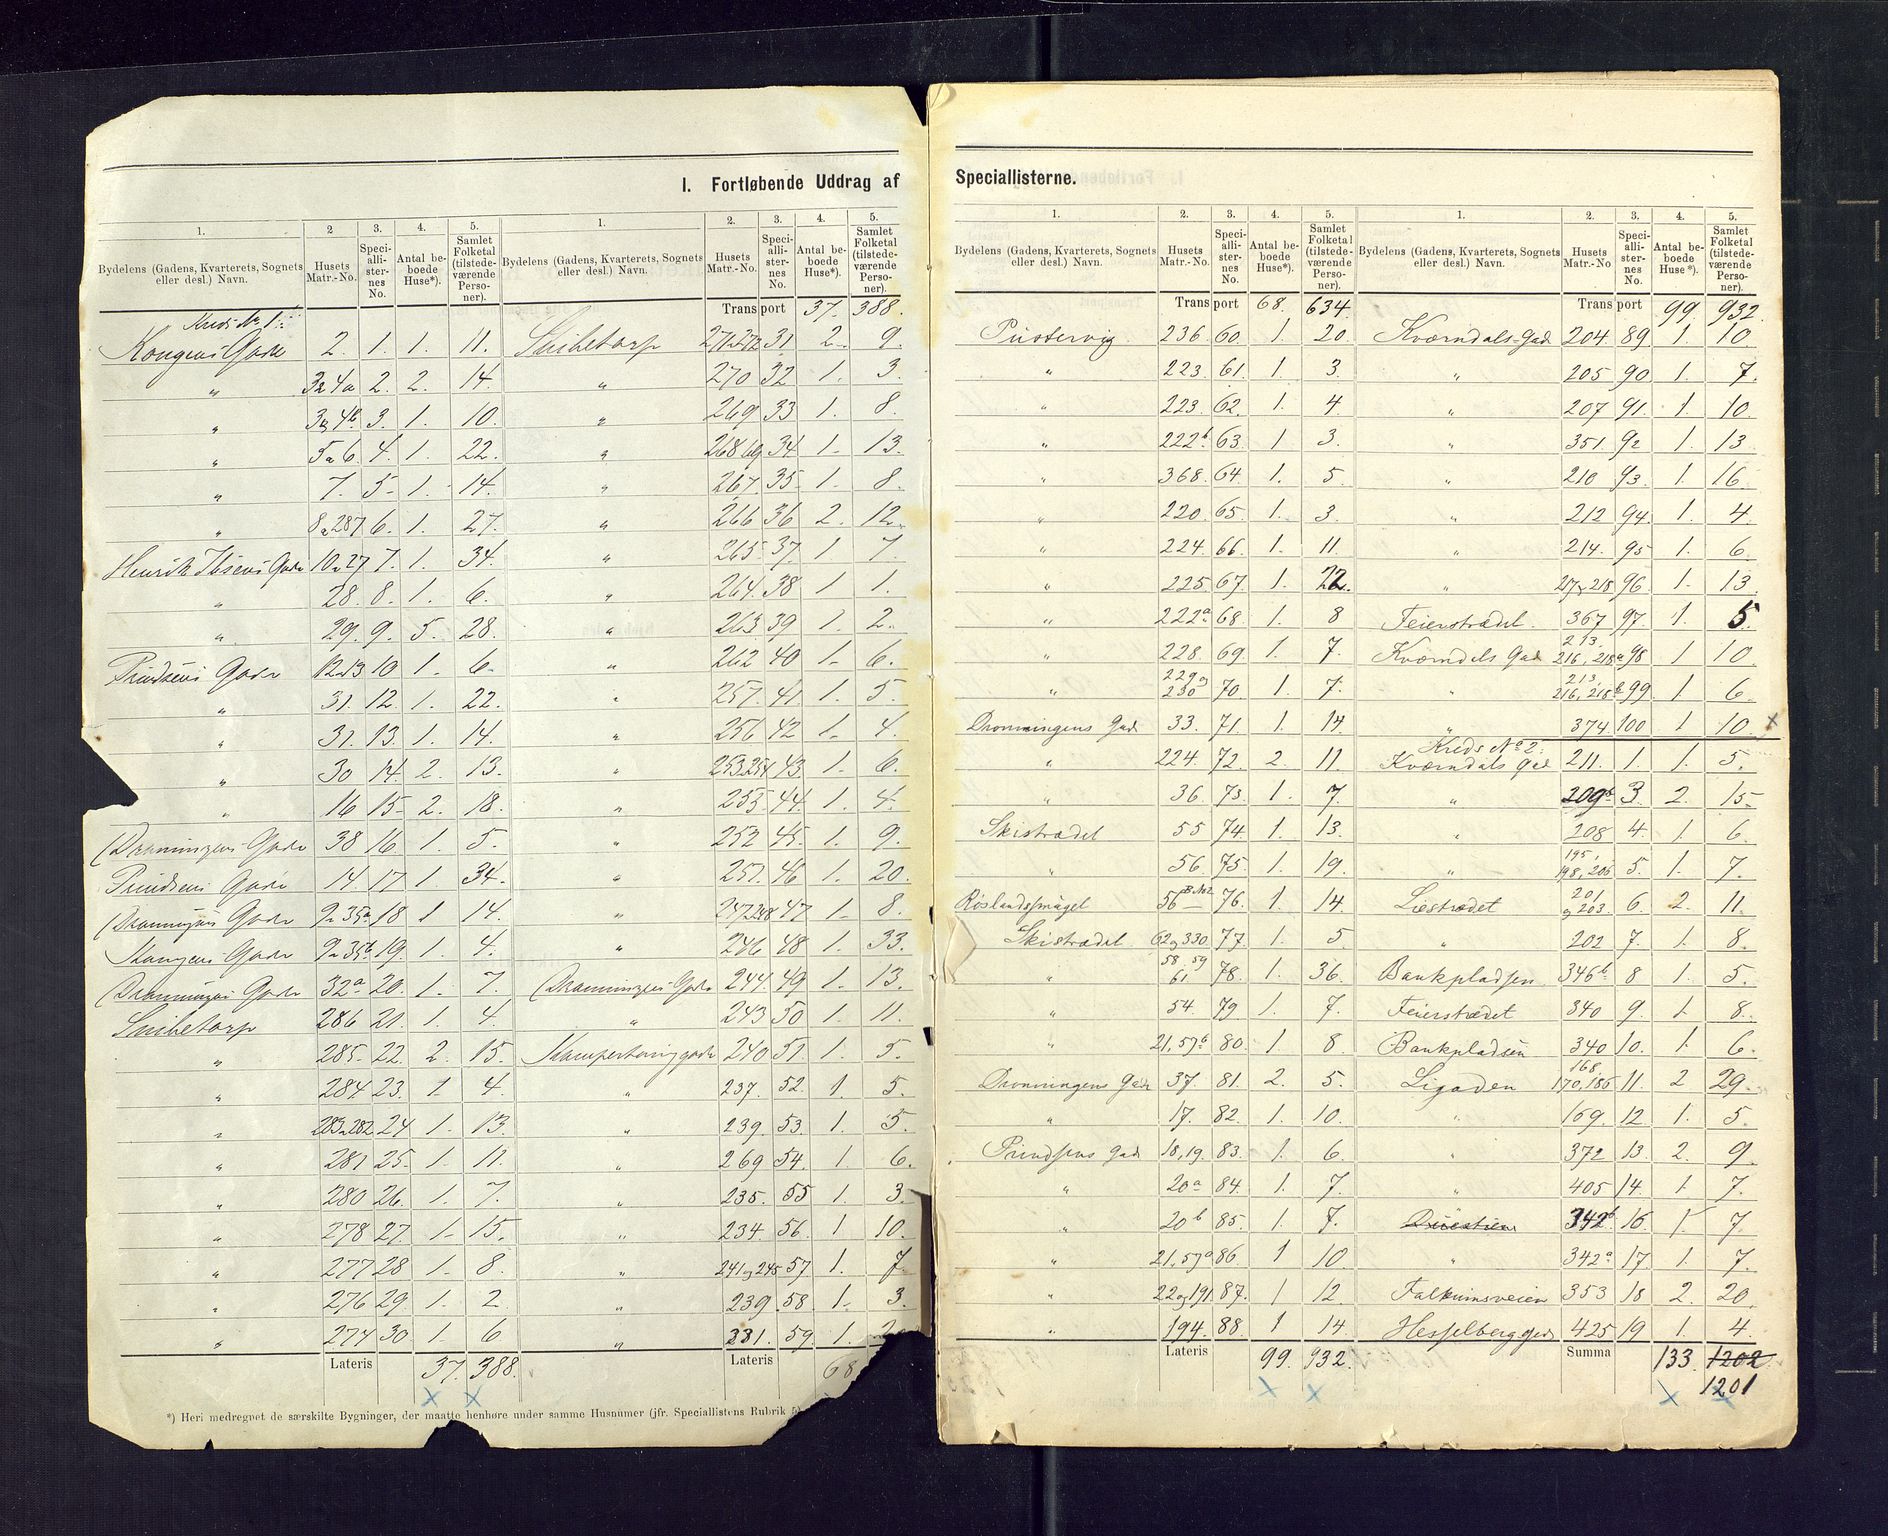 I. Fortløbende Uddrag af Speciallisterne.
1. 2 3. 4. 5. 1. 2. 3. 4. 5.
Bydelens (Gadens, Kvarterets, Sognets eller desl.) Navn. Husets Matr.-No. Speciallisternes No. Antal beboede Huse*). Samlet Folketal (tilstedeværende Personer). Bydelens (Gadens, Kvarterets, Sognets eller desl.) Navn. Husets Matr.-No. Speciallisternes No. Antal beboede Huse*). Samlet Folketal (tilstedeværende Personer).
Kreds No 1. Transport 37. 388.
Kongens Gade 2. 1. 1. 11. Snibetorp 271 272 31 2 9.
" 3 a 4a 2. 2. 14. " 270 32 1. 3.
" 3 4b. 3. 1. 10. " 269 33 1. 8.
" 5 6. 4. 1. 22. " 268 69 34 1. 13.
" 7. 5 1. 14. " 267. 35 1 8.
" 8 287 6. 1. 27. " 266 36 2. 12.
Henrik Ibsens Gade 10 27 7. 1. 34. " 265. 37. 1 7.
" 28. 8. 1. 6. " 264. 38 1 1.
" 29. 9. 5. 28. " 263 39 1. 2.
Prindsens Gade 12 13 10 1. 6. " 262 40 1. 6.
" 31. 12. 1. 22. " 257. 41. 1. 5.
" 31. 13. 1. 14. " 256 42 1. 4.
" 30 14. 2. 13. " 253 254 43. 1. 6.
" 16 15 2. 18. " 255 44. 1. 4.
Dronningens Gade 38 16 1. 5. " 252 45. 1. 9.
Prindsens Gade 14. 17 1. 34. " 251. 46 1. 20.
Dronningens Gade 9 35a 18 1 14. " 247 248 47 1. 8.
Kongens Gade 9 35b 19. 1 4. " 246 48 1. 33.
Dronningens Gade 32a 20. 1. 7. Dronningens Gade 244. 49 1. 13.
Snibetorp 286 21. 1. 4. " 243 50 1. 11.
" 285 22. 2. 15. Kompestranggade 240 51. 1. 5.
" 284 23. 1. 4. " 237. 52. 1. 5.
" 283 282 24 1. 13. " 239. 53. 1. 5.
" 281 25. 1. 11. " 269 54. 1. 6.
" 280 26. 1. 7. " 235. 55 1. 3.
" 278 27. 1. 15. " 234. 56. 1. 10.
" 277 28 1. 8. " 241 og 245 57 1. 7
" 276 29. 1. 2. " 239. 58. 1. 3.
" 274 30 1. 6 " 231. 59. 1.
Lateris 37. 388. Lateris 68
*) Heri medregnet de særskilte Bygninger, der maatte henhøre under samme Husnumer (jfr. Speciallistens Rubrik 5)
1. 2. 3. 4. 5. 1. 2. 3. 4. 5.
Bydelens (Gadens, Kvarterets, Sognets eller desl.) Navn. Husets Matr.-No. Speciallisternes No. Antal beboede Huse*). Samlet Folketal (tilstedeværende Personer). Bydelens (Gadens, Kvarterets, Sognets eller desl.) Navn. Husets Matr.-No. Speciallisternes No. Antal beboede Huse*). Samlet Folketal (tilstedeværende Personer).
Transport 68. 634. Transport 99 932.
Pustervig 236 60. 1. 20 Kværndals Gad 204 89 1. 10
" 223. 61. 1. 3. " 205 90 1. 7.
" 223. 62. 1. 4 " 207 91. 1. 10
" 222b 63. 1 3. " 351. 92 1. 13
" 368. 64. 1. 5 " 210 93. 1. 16
" 220. 65. 1. 3. " 212 94. 1. 4
" 224. 66. 1. 11. " 214. 95 1. 6
" 225. 67. 1. 22. " 217 218 96 1. 13
" 222a 68. 1. 8 Feierstrædet. 367 97. 1. 5
" 228. 69. 1. 7. Kværndals Gad 213, 216, 218a 98 1 10
" 229 og 230 70. 1 7. " 213, 216, 218 99 1. 6
Dronningens Gad 33. 71. 1. 14 " 374 100 1 10
Kreds No 2.
" 224. 72. 2. 11 Kværndals Gad 211. 1. 1. 5.
" 36 73. 1. 7. " 209b 3. 2. 15
Skistrædet 55 74. 1. 13. " 208 4. 1. 6
" 56 75. 1. 19. " 195, 198, 205 5. 1. 7.
Røslandsmuget 56 B No 2 76. 1. 14 Liestrædet 201 og 203. 6. 2. 11
Skistrædet 62 og 330. 77. 1. 5 " 202 7. 1. 8.
" 58, 59 61 78. 1. 36. Bankpladsen 346b 8 1. 5.
" 54. 79. 1. 7. Feierstrædet 340 9. 1. 8.
" 21, 57b 80. 1 8 Bankpladsen 340 10. 1. 6.
Dronningens Gade 37. 81. 2. 5. Ligaden 168, 170, 186 11. 2 29.
" 17. 82. 1. 10. " 169. 12 1. 5
Prindsens Gad 18, 19. 83. 1. 6 " 372 13 2. 9
" 20a 84. 1. 7. " 405 14. 1. 7.
" 20b 85. 1. 7. 342b 16. 1 7.
" 21, 57a 86. 1 10 " 342a 17. 1. 7.
" 22 og 191. 87. 1 12. Falkumsveien 353 18 2. 20.
" 194. 88. 1 14 Hesselberg gad 425 19 1. 4
Lateris 99. 932. Summa 133. 1202
1201